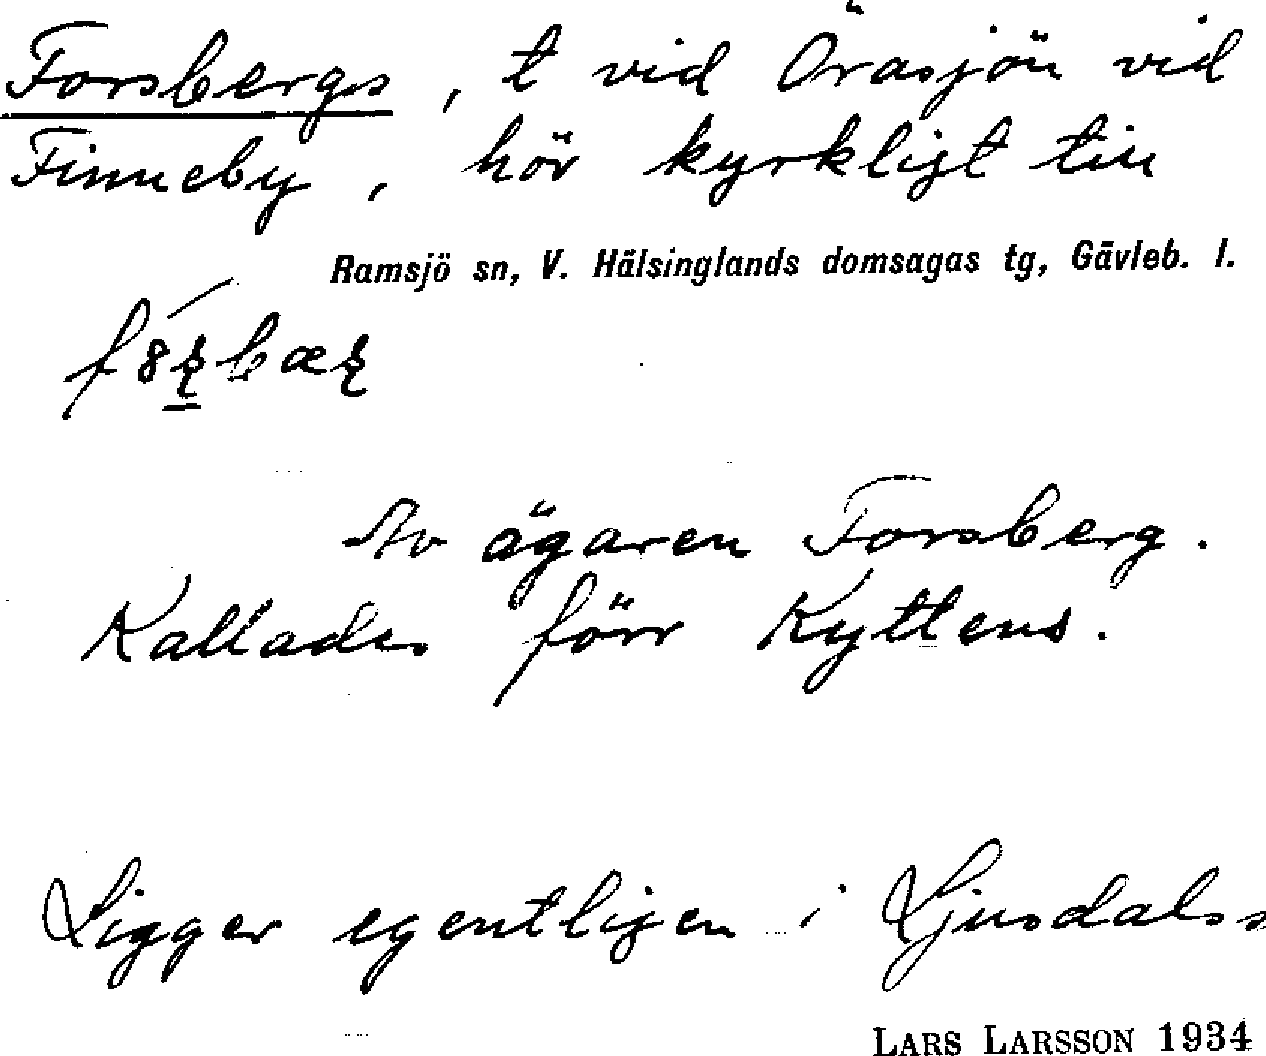 Forsbergs, t vid Örasjön vid
Finneby, hör kyrkligt till
Ramsjö sn, V. Hälsinglands domsagas tg, Gävleb. l.
Av ägaren Forsberg.
Kallades förr Kyttens.
Ligger egentligen i Ljusdals s
LARS LARSSON 1934